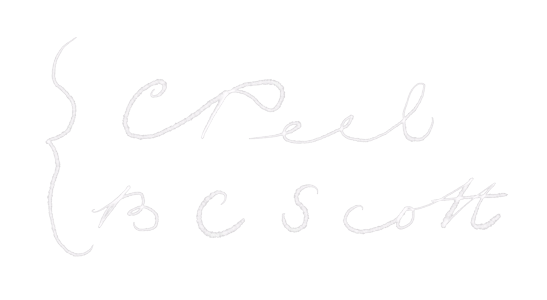 C Peel
B C Scott